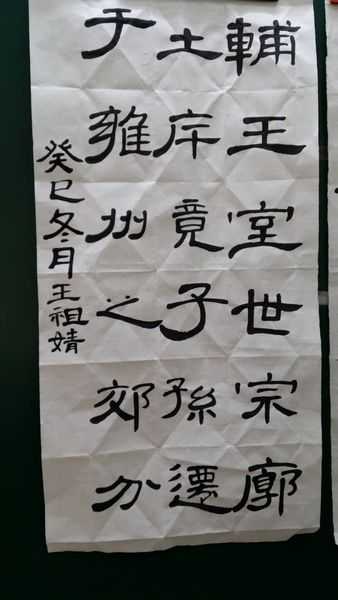 輔王室世宗廓
土斥竟子孫遷
于雍州之郊分
癸巳冬月王祖婧